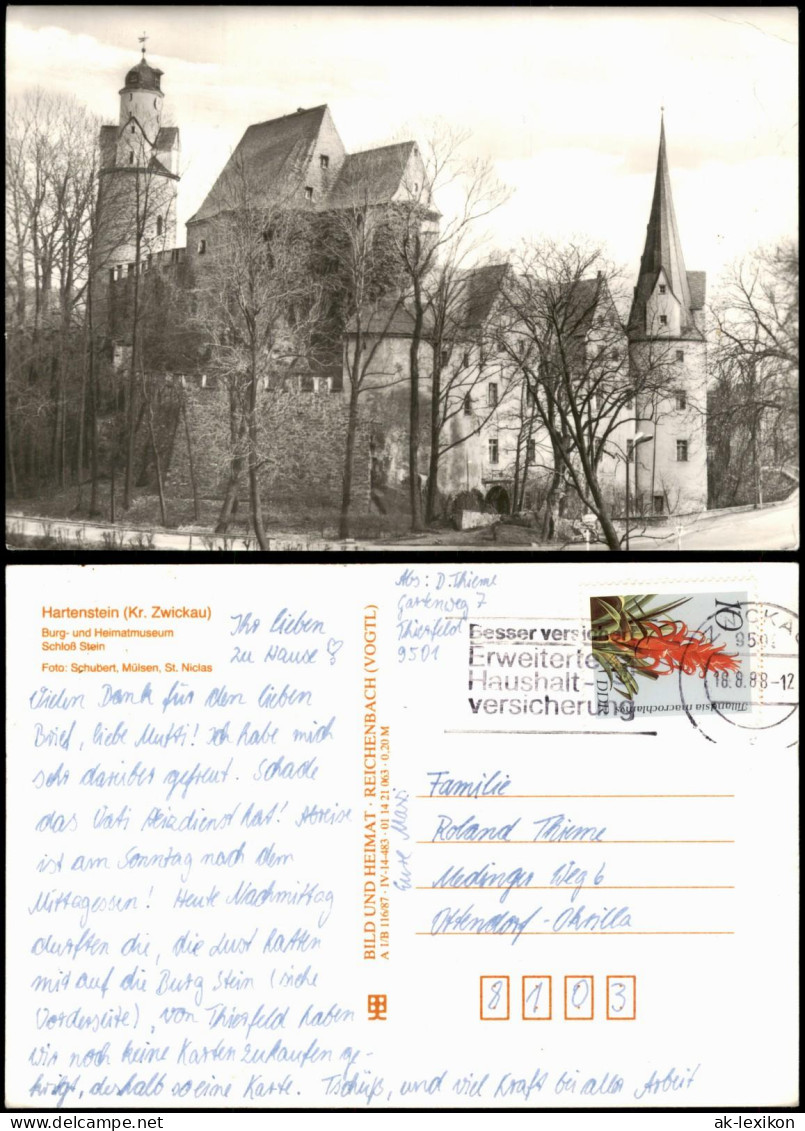 Hartenstein (Kr. Zwickau)
Burg- und Heimatmuseum
Schloß Stein
Foto: Schubert, Mülsen, St. Niclas
Ihr lieben
zu Hause
Vielen Dank für den lieben
Brief, liebe Mutti! Ich habe mich
sehr darüber gefreut. Schade
das Vati Heizdienst hat! Abreise
ist am Sonntag nach dem
Mittagessen! Heute Nachmittag
durften die, die Lust hatten
mit auf die Burg Stein (siehe
Vorderseite), von Thierfeld haben
wir noch keine Karten zukaufen ge-
kriegt, deshalb so eine Karte. Tschüß, und viel Kraft bei aller Arbeit
Eure Maxi
BILD UND HEIMAT · REICHENBACH (VOGTL)
A 1/B 116/87 · IV-14-483 · 01 14 21 063 · 0,20 M
Abs: D. Thieme
Gartenweg 7
Thierfeld
9501
Besser versichern
Erweiterte
Haushalt-
versicherung
10
DDR
Tillandsia macrochlamys
ZWICKAU
9501
18.8.88-12
Familie
Roland Thieme
Medinger Weg 6
Ottendorf-Okrilla
8103
ak-lexikon